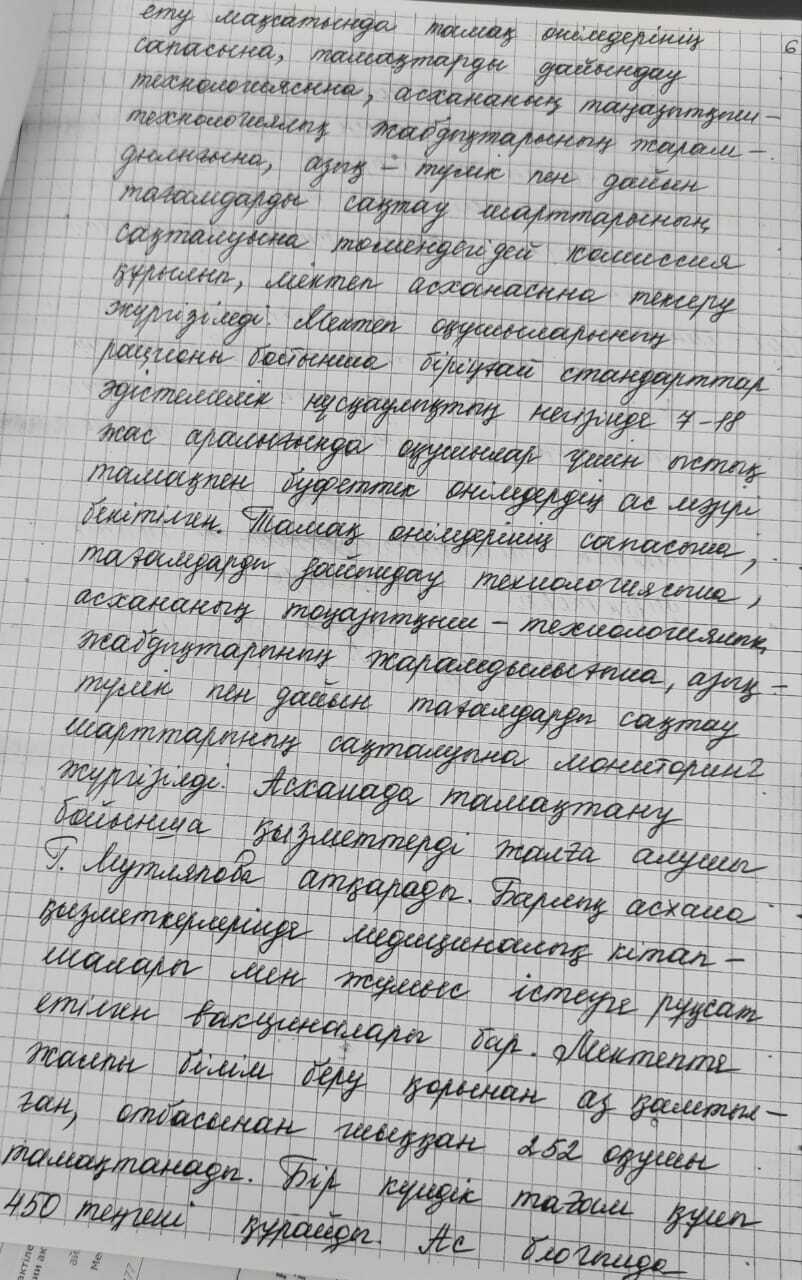 6
ету мақсатында тамақ өнімдерінің
сапасына, тамақтарды дайындау
технологиясына, асхананың таңазытқыш –
технологиялық жабдықтарының жарам –
дылығына, азық – түлік пен дайын
тағамдарды сақтау шарттарының
сақталуына төмендегідей комиссия
құрылып, мектеп асханасына тексеру
жүргізілді. Мектеп оқушыларының
рационы бойынша бірыңғай стандарттар
әдістемелік нұсқаулықтың негізінде 7-18
жас аралығында оқушылар үшін ыстық
тамақпен буфеттік өнімдердің ас мәзірі
бекітілген. Тамақ өнімдерінің сапасына,
тағамдарды дайындау технологиясына,
асхананың тоңазытқыш – технологиялық
жабдықтарының жарамдылығына, азық –
түлік пен дайын тағамдарды сақтау
шарттарының сақталуына мониторинг
жүргізілді. Асханада тамақтану
бойынша қызметтерді жалға алушы
Г. Мутляпова атқарады. Барлық асхана
қызметкерлерінде медициналық кітап –
шалары мен жұмыс істеуге рұқсат
етілген вакциналары бар. Мектепте
жалпы білім беру қорынан аз қамтыл –
ған, отбасынан шыққан 252 оқушы
тамақтанады. Бір күндік тағам құны
450 теңгені құрайды. Ас блогында